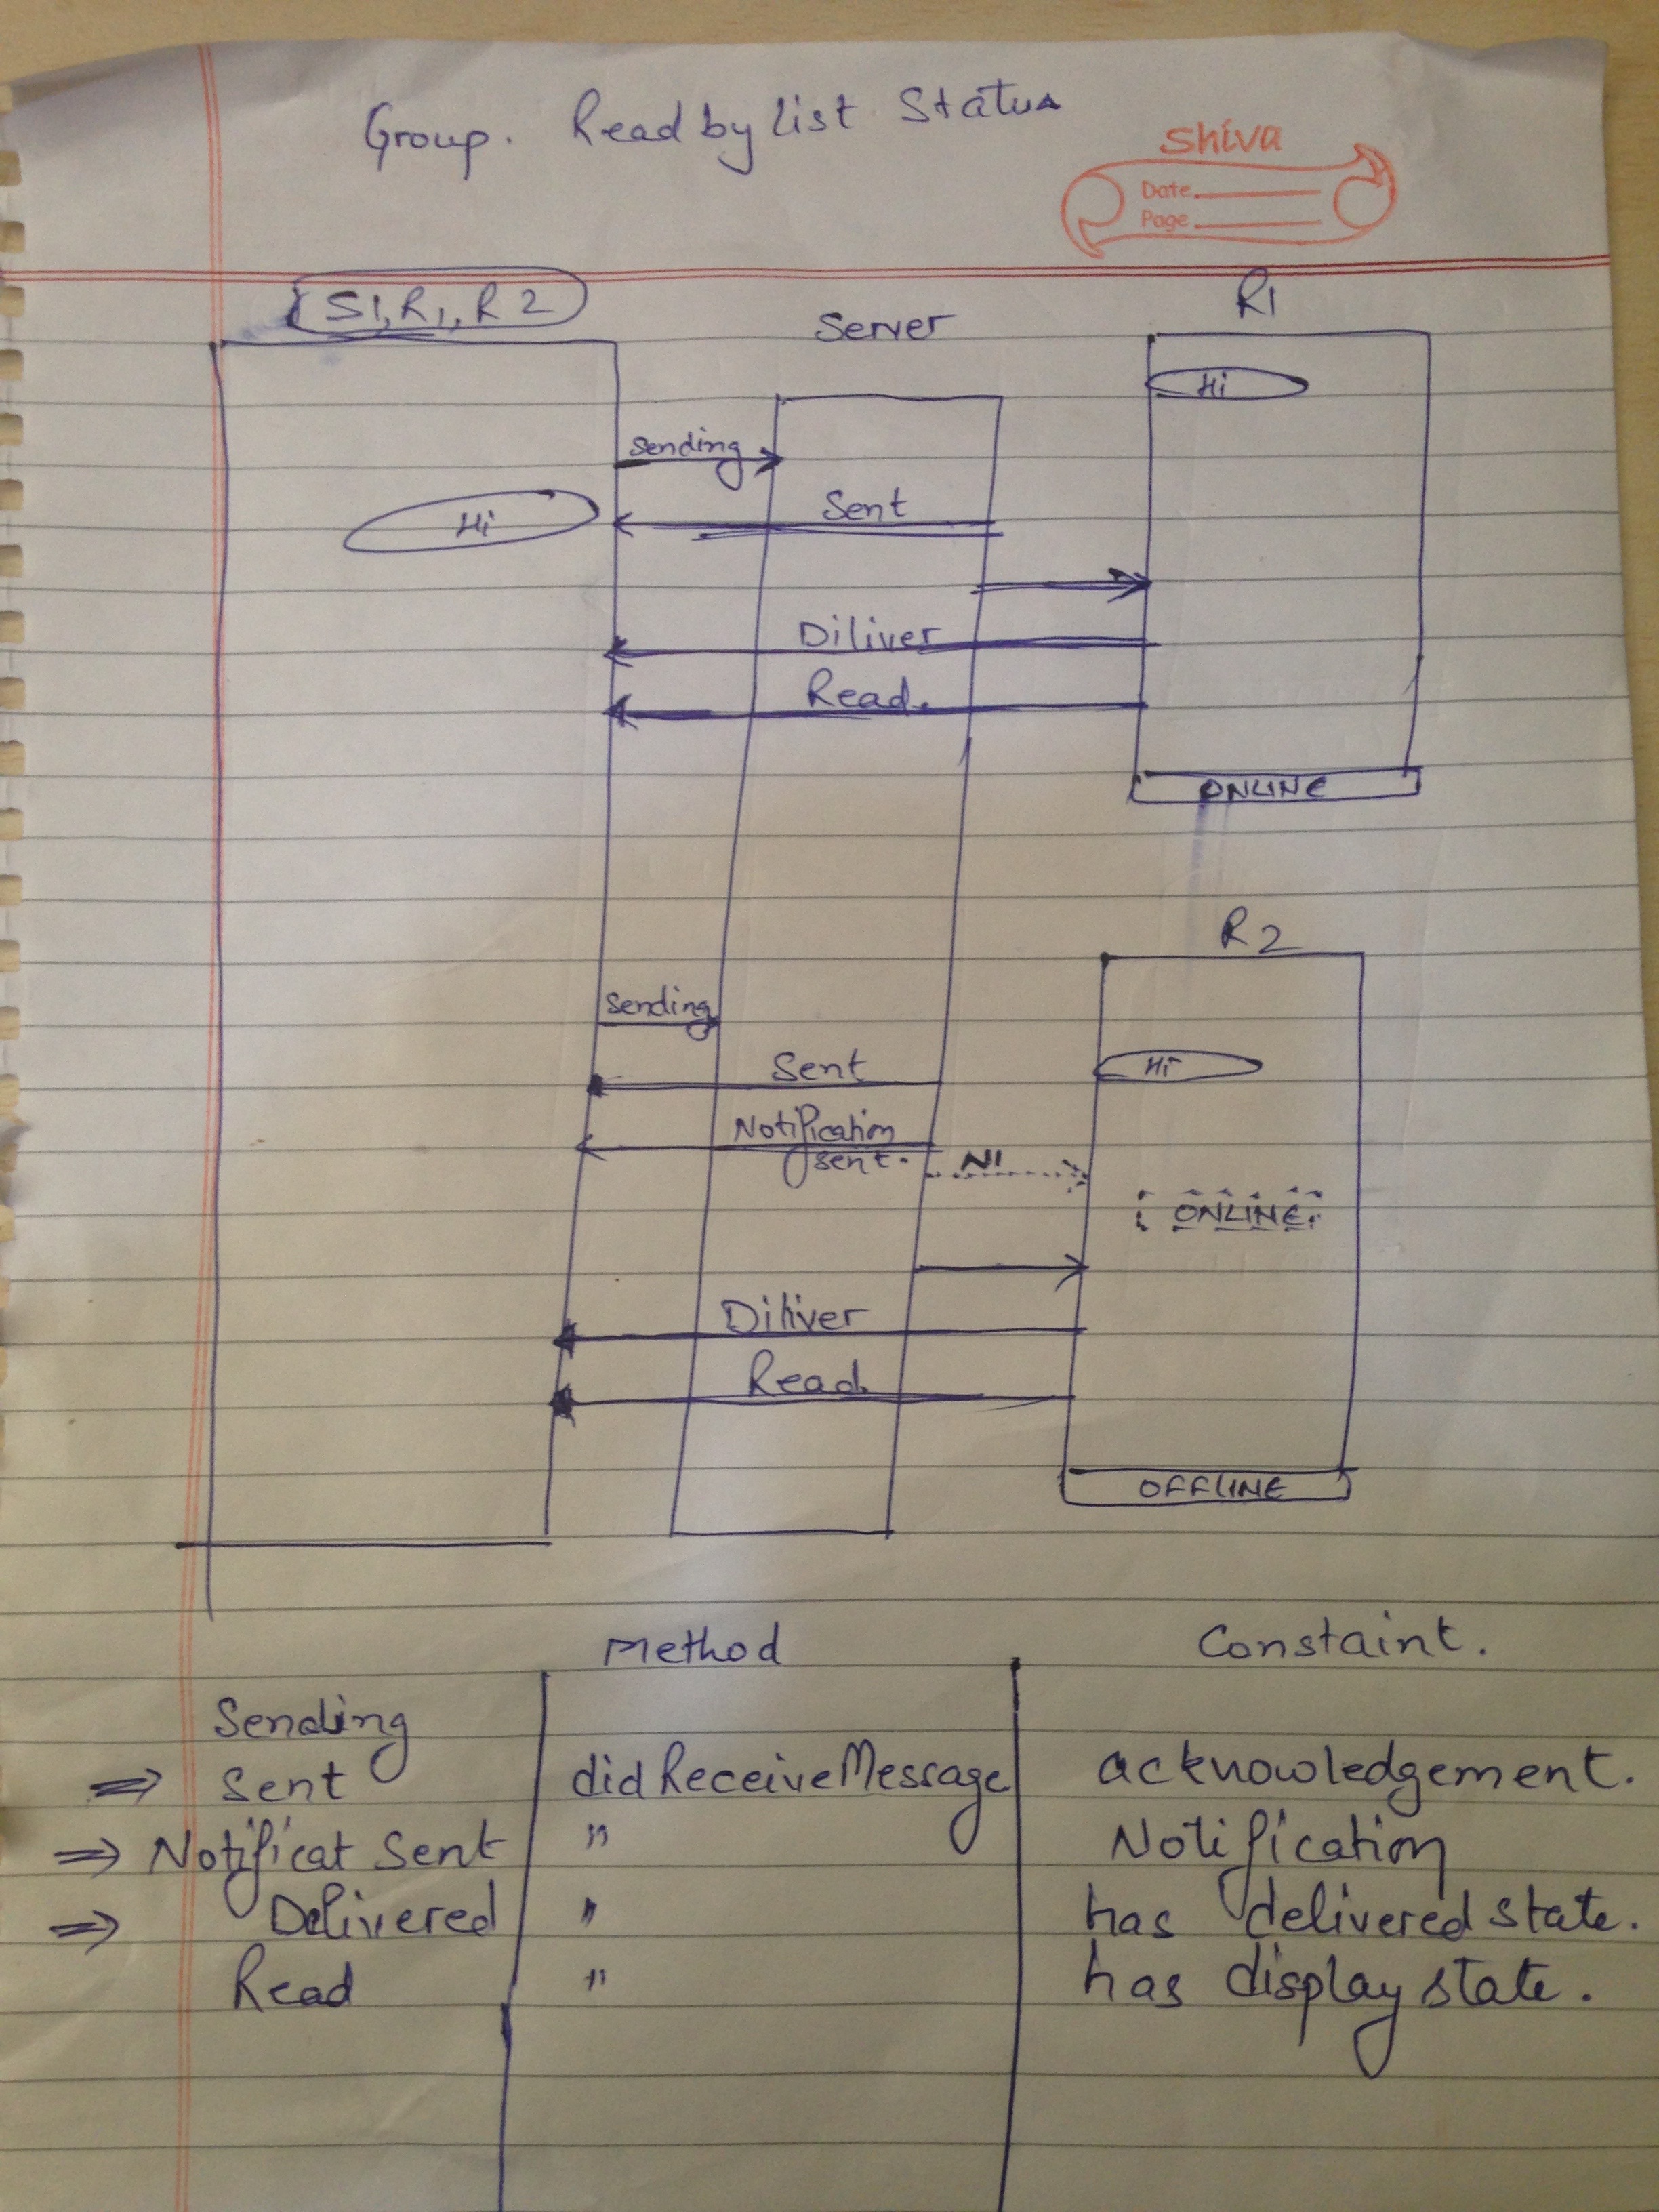 Group. Read by list Status
Shiva
Date
Page
S1, R1, R2
Server
R1
Hi
Sending
Sent
Hi
Diliver
Read.
ONLINE
R2
Sending
Sent
Hi
Notification
sent.
N1
ONLINE
Diliver
Read.
OFFLINE
Method Constaint.
Sending
⇒ Sent didReceiveMessage acknowledgement.
⇒ Notificat Sent " Notification
⇒ Delivered " has delivered state.
Read " has display state.